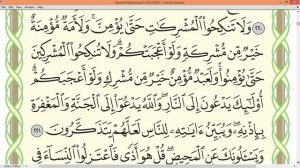 ٢٢٠ وَلَا تَنكِحُوا۟ ٱلْمُشْرِكَٰتِ حَتَّىٰ يُؤْمِنَّ ۚ وَلَأَمَةٌ مُّؤْمِنَةٌ
خَيْرٌ مِّن مُّشْرِكَةٍ وَلَوْ أَعْجَبَتْكُمْ ۗ وَلَا تُنكِحُوا۟ ٱلْمُشْرِكِينَ
حَتَّىٰ يُؤْمِنُوا۟ ۚ وَلَعَبْدٌ مُّؤْمِنٌ خَيْرٌ مِّن مُّشْرِكٍ وَلَوْ أَعْجَبَكُمْ ۗ
أُو۟لَٰٓئِكَ يَدْعُونَ إِلَى ٱلنَّارِ ۖ وَٱللَّهُ يَدْعُوٓا۟ إِلَى ٱلْجَنَّةِ وَٱلْمَغْفِرَةِ
بِإِذْنِهِۦ ۖ وَيُبَيِّنُ ءَايَٰتِهِۦ لِلنَّاسِ لَعَلَّهُمْ يَتَذَكَّرُونَ ٢٢١
وَيَسْـَٔلُونَكَ عَنِ ٱلْمَحِيضِ ۖ قُلْ هُوَ أَذًى فَٱعْتَزِلُوا۟ ٱلنِّسَآءَ فِى